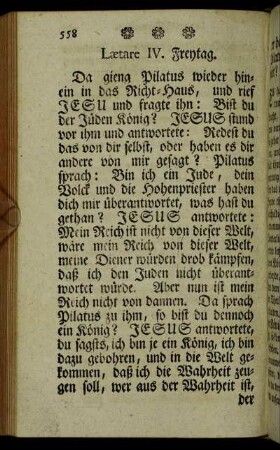 558
Lætare IV. Freytag.
Da gieng Pilatus wieder hin-
ein in das Richt-Haus, und rief
JESU und fragte ihn: Bist du
der Jüden König? JESUS stund
vor ihm und antwortete: Redest du
das von dir selbst, oder haben es dir
andere von mir gesagt? Pilatus
sprach: Bin ich ein Jude, dein
Volck und die Hohenpriester haben
dich mir überantwortet, was hast du
gethan? JESUS antwortete:
Mein Reich ist nicht von dieser Welt,
wäre mein Reich von dieser Welt,
meine Diener würden drob kämpfen,
daß ich den Juden nicht überant-
wortet würde. Aber nun ist mein
Reich nicht von dannen. Da sprach
Pilatus zu ihm, so bist du dennoch
ein König? JESUS antwortete,
du sagsts, ich bin je ein König, ich bin
dazu gebohren, und in die Welt ge-
kommen, daß ich die Wahrheit zeu-
gen soll, wer aus der Wahrheit ist,
der